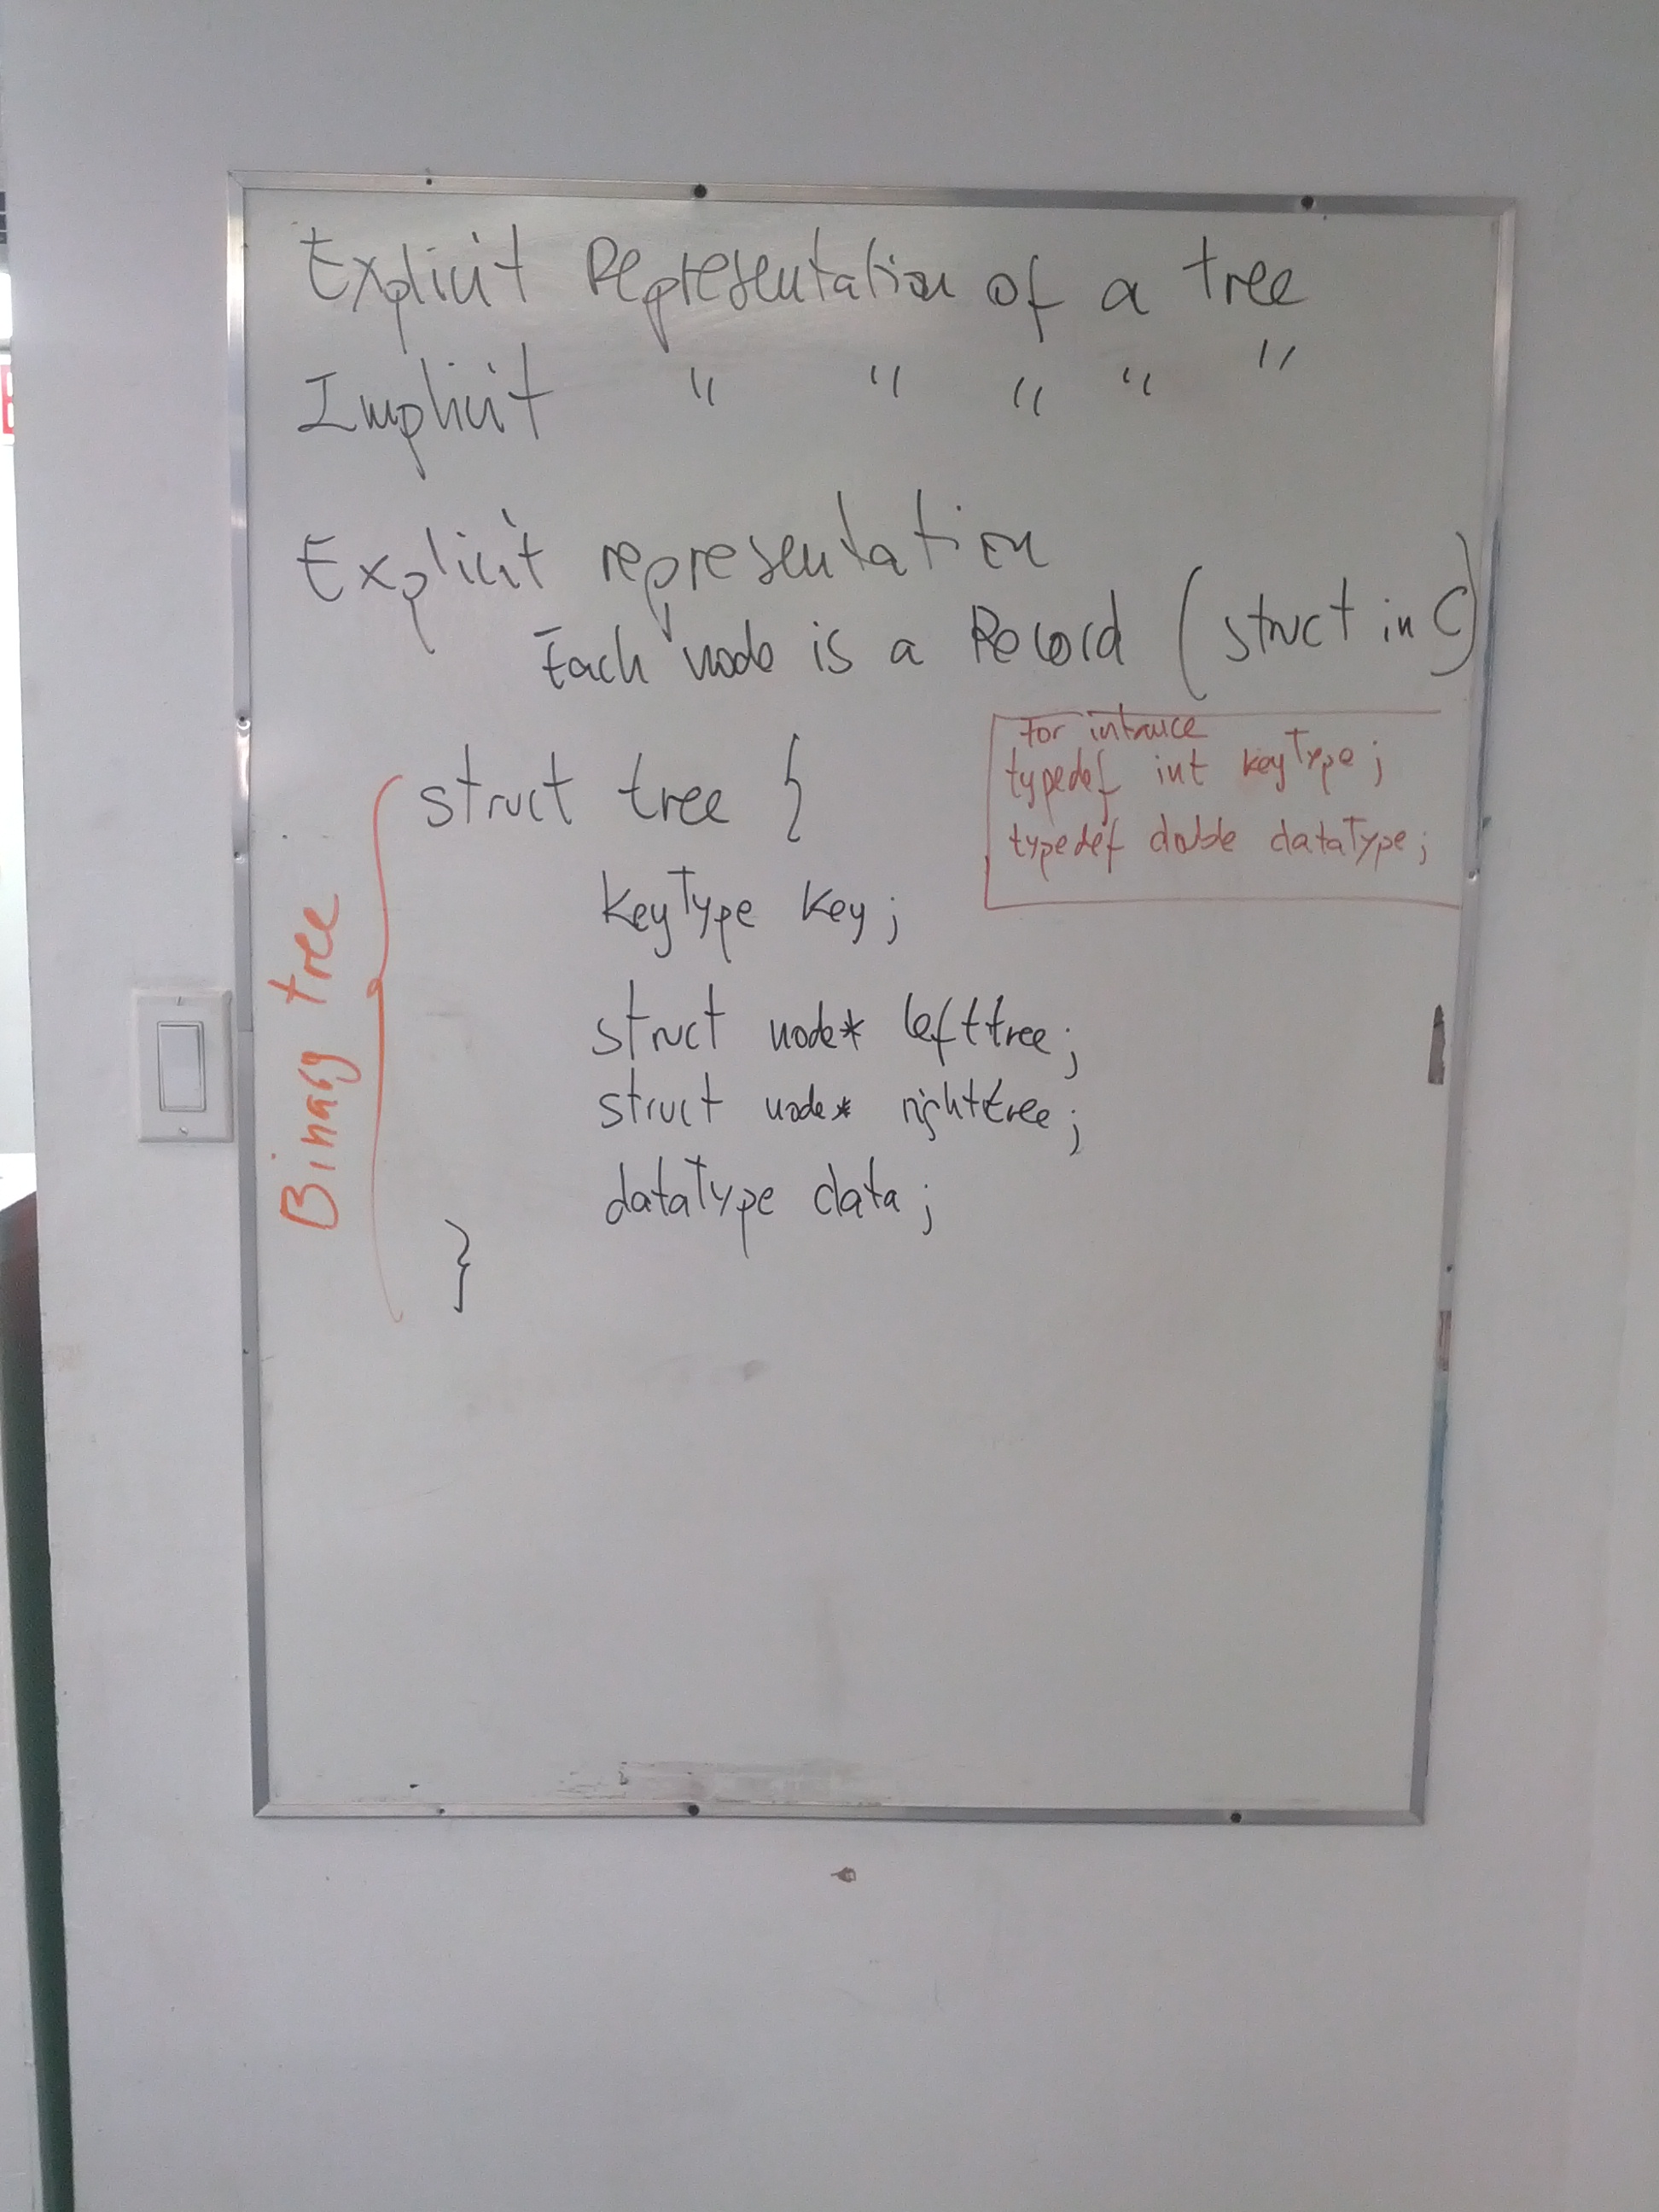 Explicit Representation of a tree
Implicit " " " " "
Explicit representation
Each node is a Record (struct in C)
For intance
typedef int keyType;
typedef double dataType;
Binary tree
struct tree {
keyType key;
struct node* lefttree;
struct node* righttree;
dataType data;
}